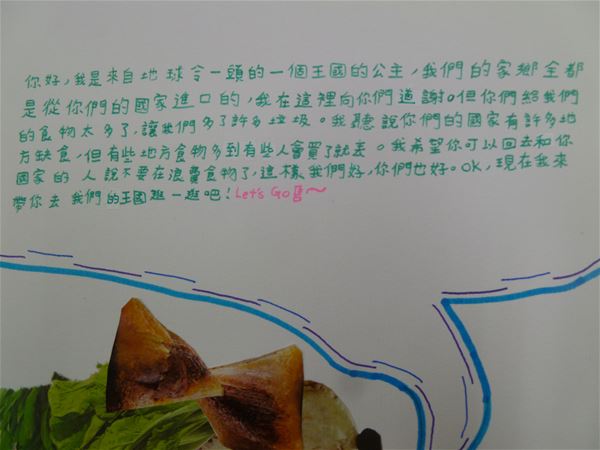 你好,我是來自地球令一頭的一個王國的公主,我們的家鄉全都
是從你們的國家進口的,我在這裡向你們道謝。但你們給我們
的食物太多了,讓我們多了許多垃圾。我聽說你們的國家有許多地
方缺食,但有些地方食物多到有些人會買了就丟。我希望你可以回去和你
國家的人說不要在浪費食物了,這樣我們好,你們也好。OK,現在我來
帶你去我們的王國逛一逛吧!Let's Go~